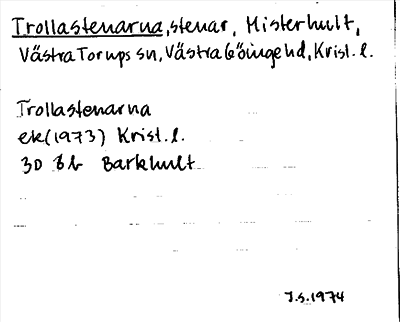 Trollastenarna, stenar, Misterhult,
Västra Torups sn, Västra Göinge hd, Krist. l.
Trollastenarna
ek(1973) Krist. l.
3D 8b Barkhult
J.S. 1974